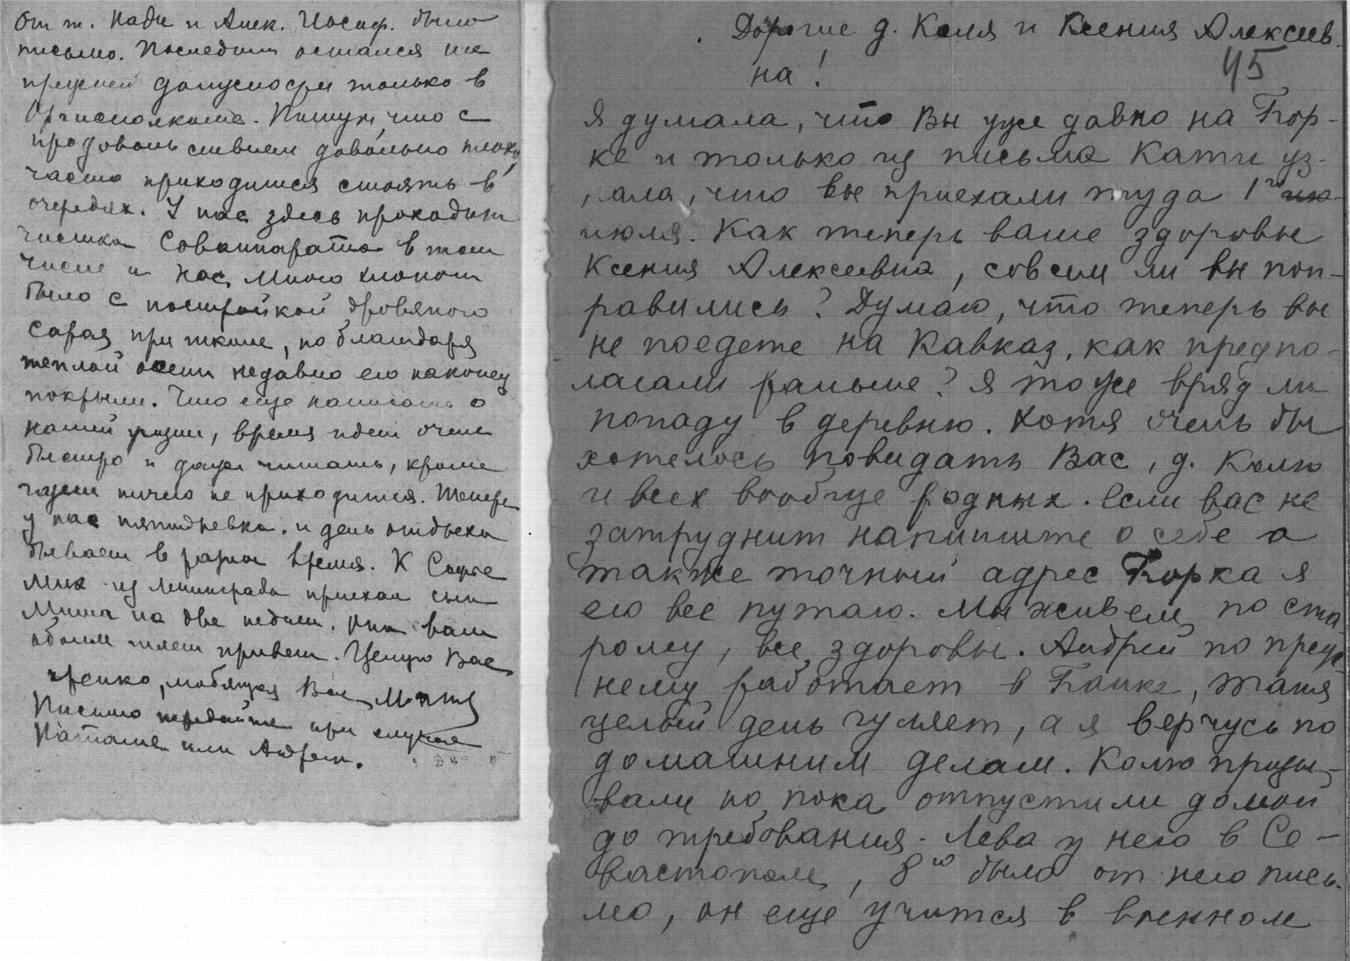 От т. Нади и Алек. Иосиф. было
письмо. Последний остался на
прежней должности только в
Пишут, что с
продовольствием довольно плохо,
часто приходится стоять в
очередях. У нас здесь проходит
чистка Соваппарата в том
числе и нас. Много хлопот
было с постройкой дровяного
сарая при школе, но благодаря
теплой осени недавно его наконец
покрыли. Что еще написать о
нашей жизни, время идет очень
быстро и даже читать, кроме
газет ничего не приходится. Теперь
у нас пятидневка и день отдыха
бывает в разное время. К
Мих. из Ленинграда приехал сын
Миша на две недели. Они вам
обоим шлют привет. Целую Вас
крепко, любящая Вас
Письмо передайте при случае
Наташе или Андрею.
Дорогие д. Коля и Ксения Алексеев-
на!
45
Я думала, что Вы уже давно на Бор-
ке и только из письма Кати уз-
ала, что вы приехали туда 1го ию
июля. Как теперь ваше здоровье
Ксения Алексеевна, совсем ли вы поп-
равились? Думаю, что теперь вы
не поедете на Кавказ, как предпо-
лагали раньше? Я тоже вряд ли
попаду в деревню. Хотя очень бы
хотелось повидать Вас, д. Колю
и всех вообще родных. Если вас не
затруднит напишите о себе а
также точный адрес Борка я
его все путаю. Мы живем по ста
рому, все здоровы. Андрей по преж
нему работает в Банке, Таня
целый день гуляет, а я верчусь по
домашним делам. Колю призы-
вали но пока отпустили домой
до требования. Лева у него в Се-
вастополе, 8го было от него пись-
мо, он еще учится в военном